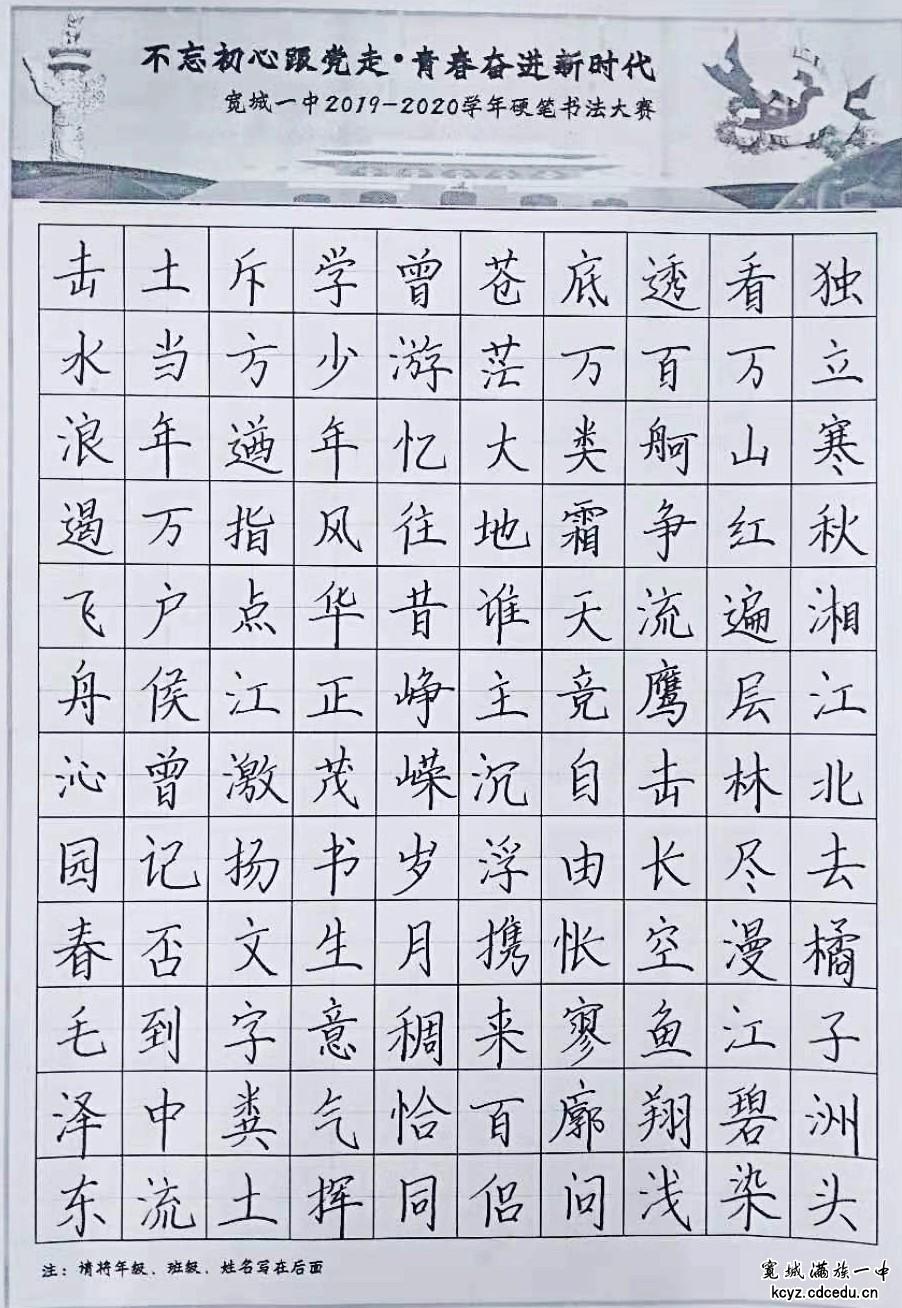 不忘初心跟党走·青春奋进新时代
宽城一中2019-2020学年硬笔书法大赛
独立寒秋湘江北去橘子洲头
看万山红遍层林尽漫江碧染
透百舸争流鹰击长空鱼翔浅
底万类霜天竞自由怅寥廓问
苍茫大地谁主沉浮携来百侣
曾游忆往昔峥嵘岁月稠恰同
学少年风华正茂书生意气挥
斥方遒指点江激扬文字粪土
土当年万户侯曾记否到中流
击水浪遏飞舟沁园春毛泽东
注：请将年级、班级、姓名写在后面
宽城满族一中
kcyz.cdcedu.cn